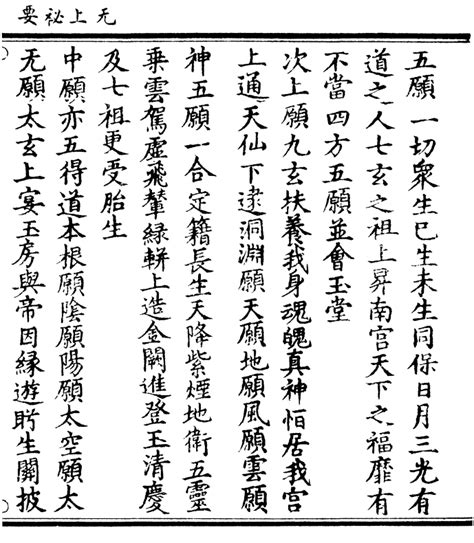 无上祕要
五願一切衆生已生未生同保日月三光有
道之人七玄之祖上昇南宫天下之福靡有
不當四方五願並會玉堂
次上願九玄扶養我身魂魄真神恒居我宫
上通天仙下逮洞淵願天願地願風願雲願
神五願一合定籍長生天降紫煙地衛五靈
乗雲駕虛飛輦緑軿上造金闕進登玉清慶
及七祖更受胎生
中願亦五得道本根願陰願陽願太空願太
无願太玄上宴玉房與帝因緣遊盻生關披